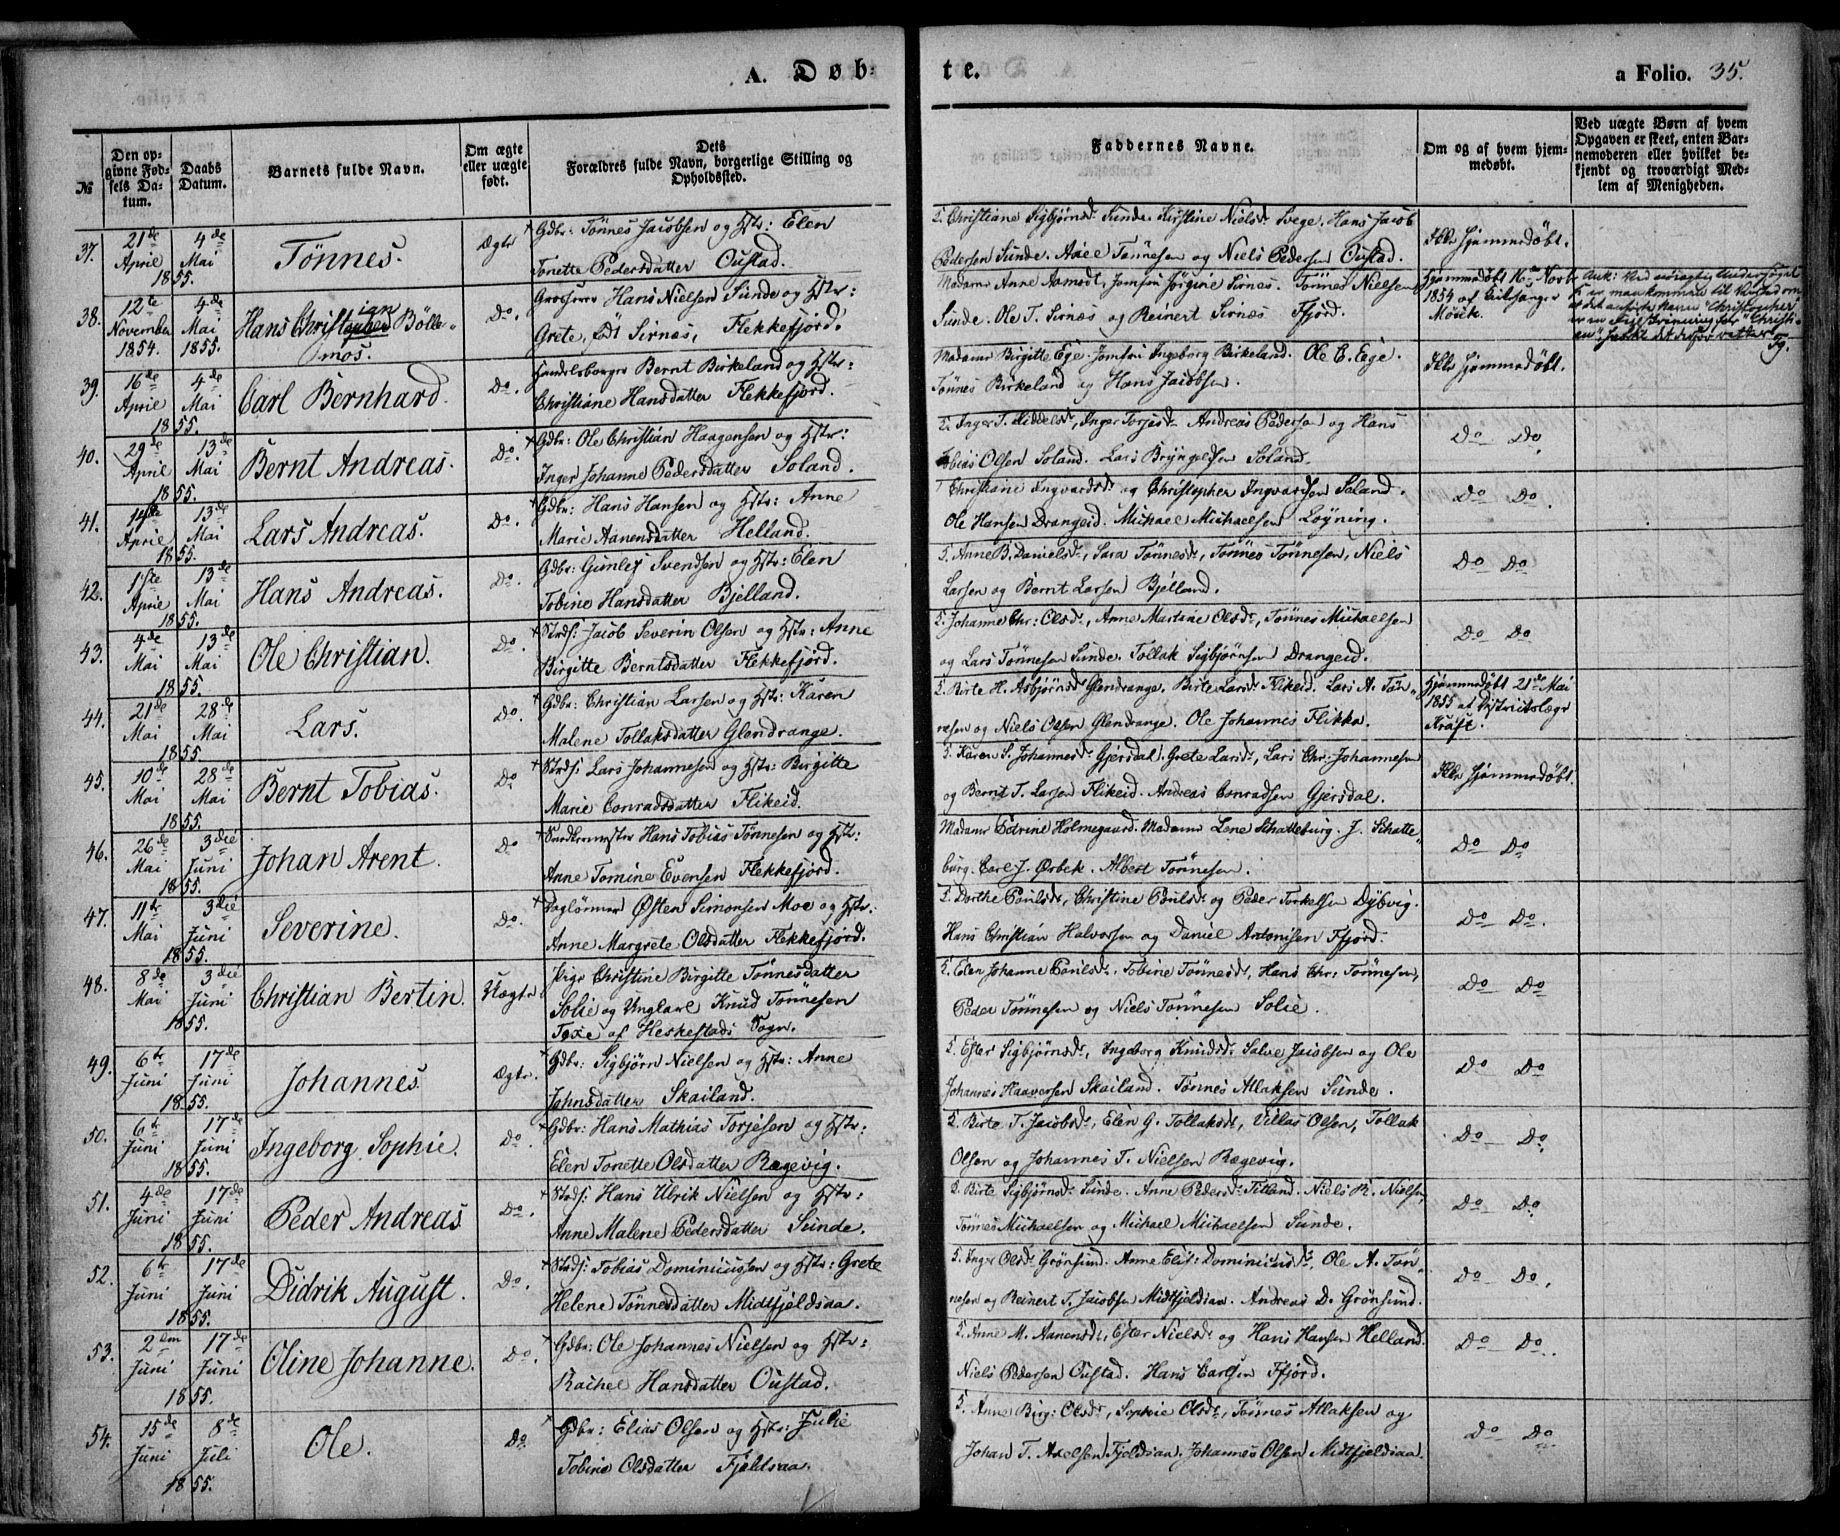 A. Døb-
te.
a Folio. 35.
№
Den opgivne Fødsels Datum.
Daabs Datum.
Barnets fulde Navn.
Om ægte eller uægte født.
Dets Forældres fulde Navn, borgerlige Stilling og Opholdssted.
Faddernes Navne.
Om og af hvem hjemmedøbt.
Ved uægte Børn af hvem Opgaven er skeet, enten Barnemoderen eller hvilket bekjendt og troværdigt Medlem af Menigheden.
37. 21de April 4de Mai 1855. Tønnes. Ægte Gdbr: Tønnes Jacobsen og Hstr: Elen
Tonette Pedersdatter Oustad.
5. Christiane Sigbjørnsdr Sunde. Kirstine Nielsdr Svege. Hans Jacob
Pedersen Sunde. Axel Tønnesen og Niels Pedersen Oustad.
Ikke hjemmedøbt.
38. 12te November 1854. 4de Mai 1855. Hans Christian Bøllemos. Do. Grosserer Hans Nielsen Sunde og Hstr:
Grete, født Sirnes, Flekkefjord.
Madame Anne Aamodt, Jomfru Jørgine Sirnes. Tønnes Nielsen
Sunde. Ole T. Sirnes og Reinert Sirnes Ffjord.
Hjemmedøbt 16de Novbr
1854 af
39. 16de April 4de Mai 1855. Carl Bernhard. Do. Handelsborger Bernt Birkeland og Hstr:
Christiane Hansdatter Flekkefjord.
Madame Birgitte Ege. Jomfru Ingeborg Birkeland. Ole C. Ege.
Tønnes Birkeland og Hans Jacobsen.
Ikke hjemmedøbt.
40. 29de April 13de Mai 1855. Bernt Andreas. Do. Gdbr: Ole Christian Haagensen og Hstr:
Inger Johanne Pedersdatter Soland.
5. Inger T. Middelsdr, Inger Torjesdr. Andreas Pedersen og Hans
Tobias Olsen Soland. Lars Bryngelsen Soland.
Do Do
41. April 13de Mai 1855. Lars Andreas. Do. Gdbr: Hans Hansen og Hstr: Anne
Marie Aanensdatter Helland.
Christiane Ingvardsdr og Christopher Ingvardsen Soland.
Ole Hansen Drangeid. Michael Michaelsen Løyning.
Do Do.
42. 1ste April 13de Mai 1855. Hans Andreas. Do. Gdbr: Gunlef Svendsen og Hstr: Elen
Tobine Hansdatter Bjelland.
5. Anne B. Danielsdr, Sara Tønnesdr, Tønnes Tønnesen, Niels
Larsen og Bernt Larsen Bjelland.
Do Do
43. 4de Mai 13de Mai 1855. Ole Christian. Do. Strds: Jacob Severin Olsen og Hstr: Anne
Birgitte Berntsdatter Flekkefjord.
5. Johanne Chr: Olsdr, Anne Martine Olsdr, Tønnes Michaelsen
og Lars Tønnesen Sunde. Tollak Sigbjørnsen Drangeid.
Do Do
44. 21de Mai 28de Mai 1855. Lars. Do. Gdbr: Christian Larsen og Hstr: Karen
Malene Tollaksdatter Glendrange.
5. Birte H. Asbjørnsdr Glendrange. Birte Larsdr Flikeid. Lars A. Tønnesen og Niels Olsen Glendrange. Ole Johannes Flikka.
Hjemmedøbt 21de Mai
1855 af Districtslæge
Kraft.
45. 10de Mai 28de Mai 1855. Bernt Tobias. Do Strds: Lars Johannesen og Hstr: Birgitte
Marie Conradsdatter Flikeid.
5. Karen S. Johannesdr Gjersdal. Grete Larsdr, Lars Chr: Johannesen
og Bernt T. Larsen Flikeid. Andreas Conradsen Gjersdal.
Ikke hjemmedøbt.
46. 26de Mai 3die Juni 1855. Johan Arent. Do Hans Tobias Tønnesen og Hstr:
Anne Tomine Evensen Flekkefjord.
Madame Petrine Holmegaard. Madame Lene Schatteburg. J. Schatteburg. Carl J. Ørbek. Albert Tønnesen.
Do Do
47. 11te Mai 3die Juni 1855. Severine. Do. Daglønner Østen Simonsen Moe og Hstr:
Anne Margrete Olsdatter Flekkefjord.
5. Dorthe Poulsdr, Christine Poulsdr og Peder Torkelsen Dybvig.
Hans Christian Halvorsen og Daniel Antonisen Ffjord.
Do Do.
48. 8de Mai 3die Juni 1855. Christian Bertin. Uægte Pige Christine Birgitte Tønnesdatter
Solie og Ungkarl Knud Tønnesen
af Heskestads Sogn.
5. Elen Johanne Poulsdr. Tobine Tønnesdr, Hans Chr: Tønnesen,
Peder Tønnesen og Niels Tønnesen Solie.
Do Do
49. 6te Juni 17de Juni 1855. Johannes Ægte. Gdbr: Sigbjørn Nielsen og Hstr: Anne
Johnsdatter Skailand.
5. Ester Sigbjørnsdr, Ingeborg Knudsdr Salve Jacobsen og Ole
Johannes Haaversen Skailand. Tønnes Atlaksen Sunde.
Do Do
50. 6te Juni 17de Juni 1855. Ingeborg Sophie. Do. Gdbr: Hans Mathias Torjesen og Hstr:
Elen Tonette Olsdatter Rægevig.
5. Birte T. Jacobsdr, Elen G. Tollaksdr, Villas Olsen, Tollak
Olsen og Johannes T. Nielsen Rægevig.
Do Do
51. 4de Juni 17de Juni 1855. Peder Andreas Do. Strds: Hans Ulrik Nielsen og Hstr:
Anne Malene Pedersdatter Sunde.
5. Birte Sigbjørnsdr Sunde. Anne Pedersdr Tilland. Niels R. Nielsen
Tønnes Michaelsen og Michael Michaelsen Sunde.
Do Do
52. 6te Juni 17de Juni 1855. Didrik August. Do. Strds: Tobias Dominicussen og Hstr: Grete
Helene Tønnesdatter Midtfjeldsaa.
5. Inger Olsdr Grønsund. Anne Elis: Dominicusdr, Ole A. Tønnesen og Reinert T. Jacobsen Midtfjeldsaa. Andreas D. Grønsund.
Do Do.
53. 2den Juni 17de Juni 1855. Oline Johanne. Do. Gdbr: Ole Johannes Nielsen og Hstr:
Rachel Hansdatter Oustad.
5. Anne M. Aanensdr, Ester Nielsdr og Hans Hansen Helland.
Niels Pedersen Oustad. Hans Carlsen Ffjord.
Do Do.
54. 15de Juni 8de Juli 1855. Ole. Do Gdbr: Elias Olsen og Hstr: Julie
Tobine Olsdatter Fjeldsaa.
5. Anne Birg: Olsdr, Sophie Olsdr, Tønnes Atlaksen og
Johan T. Axelsen Fjeldsaa. Johannes Olsen Midtfjeldsaa.
Do Do